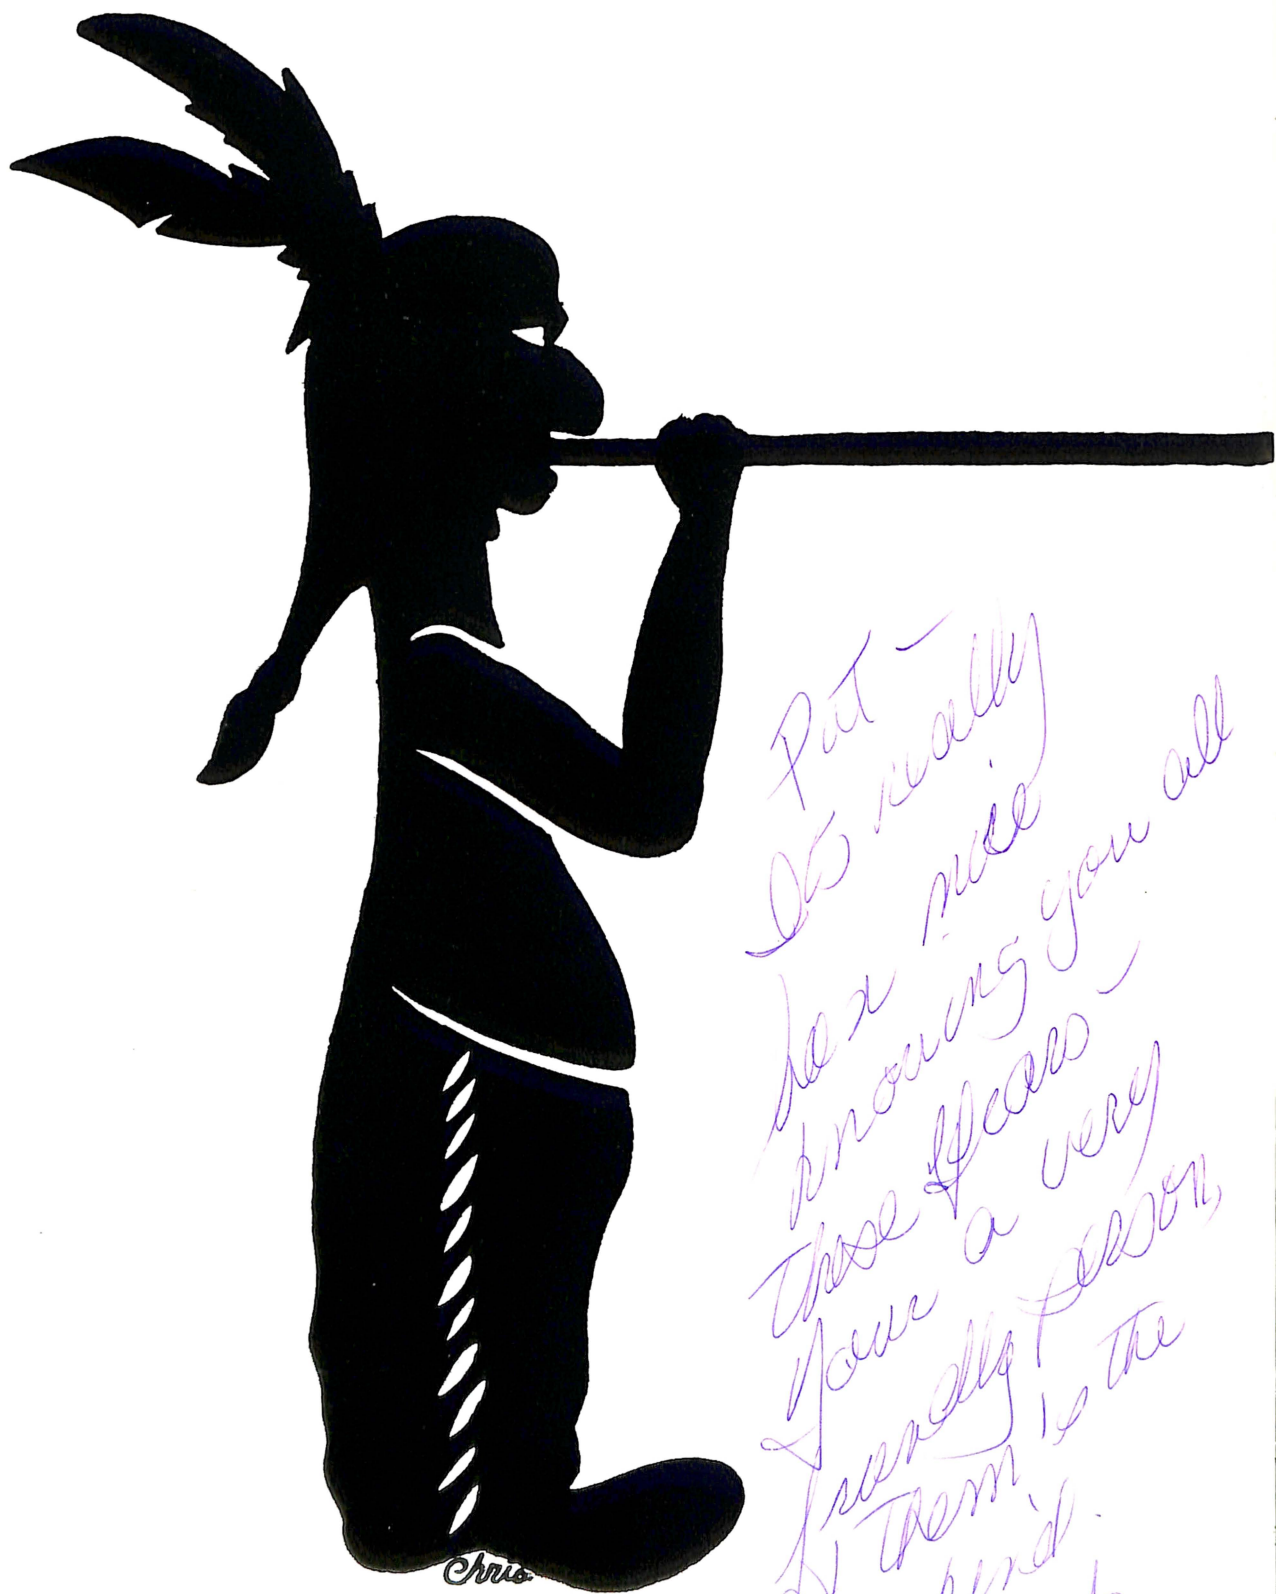 Pat -
Its really
ben nice
knowing you all
these years -
Your a very
friendly person,
& them is the
kind.
Chris